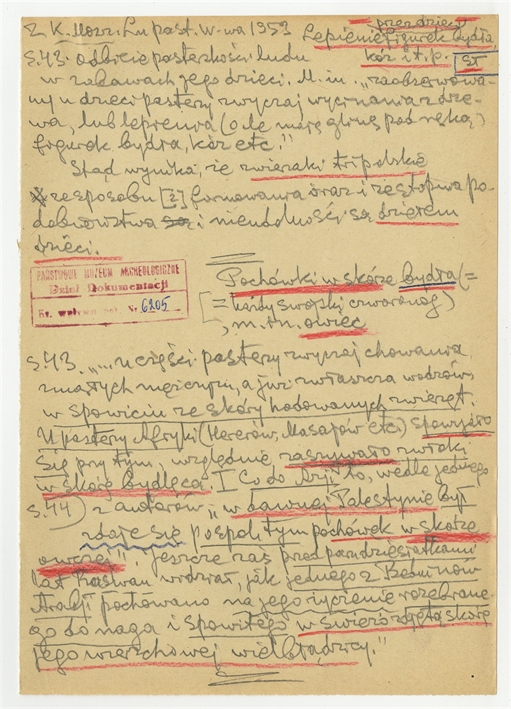 przez dzieci
Z K. Mosz. Lu past. W-wa 1953 Lepienie figurek bydła
s.43. odbicie pasterskości ludu kóz i t.p. ST
w zabawach jego dzieci. M. in. "zaobserwowa-
ny u dzieci pasterzy zwyczaj wycinania z drze-
wa, lub lepienia (o ile mają glinę pod ręką)
figurek bydła, kóz etc."
Stąd wynika, że zwierzaki tripolskie
ze sposobu [z] formowania oraz i ze stopnia po-
dobieństwa i nieudolności są dziełem
dzieci.
PAŃSTWOWE MUZEUM ARCHEOLOGICZNE
Dział Dokumentacji
Nr. 6205
Pochówki w skórze bydła (=
[= każdy swojski czworonóg)
, m. in. owiec
s.43. "... u części pasterzy zwyczaj chowania
zmarłych mężczyzn, a już zwłaszcza wodzów,
w spowiciu ze skóry hodowanych zwierząt.
U pasterzy Afryki (Hererów, Masajów etc) spowijało
się przy tym, względnie zaszywało zwłoki
w skórę bydlęcą. I Co do to, wedle jednego
s.44) z autorów "w dawnej Palestynie był
zdaje się pospolitym pochówek w skórze
owczej", jeszcze zaś przed paru dziesiątkami
lat Raswan widział, jak jednego z Beduinów
Arabji pochowano na jego życzenie rozebrane-
go do naga i spowitego w świeżo zdjętą skórę
jego wierzchowej wielbłądzicy."